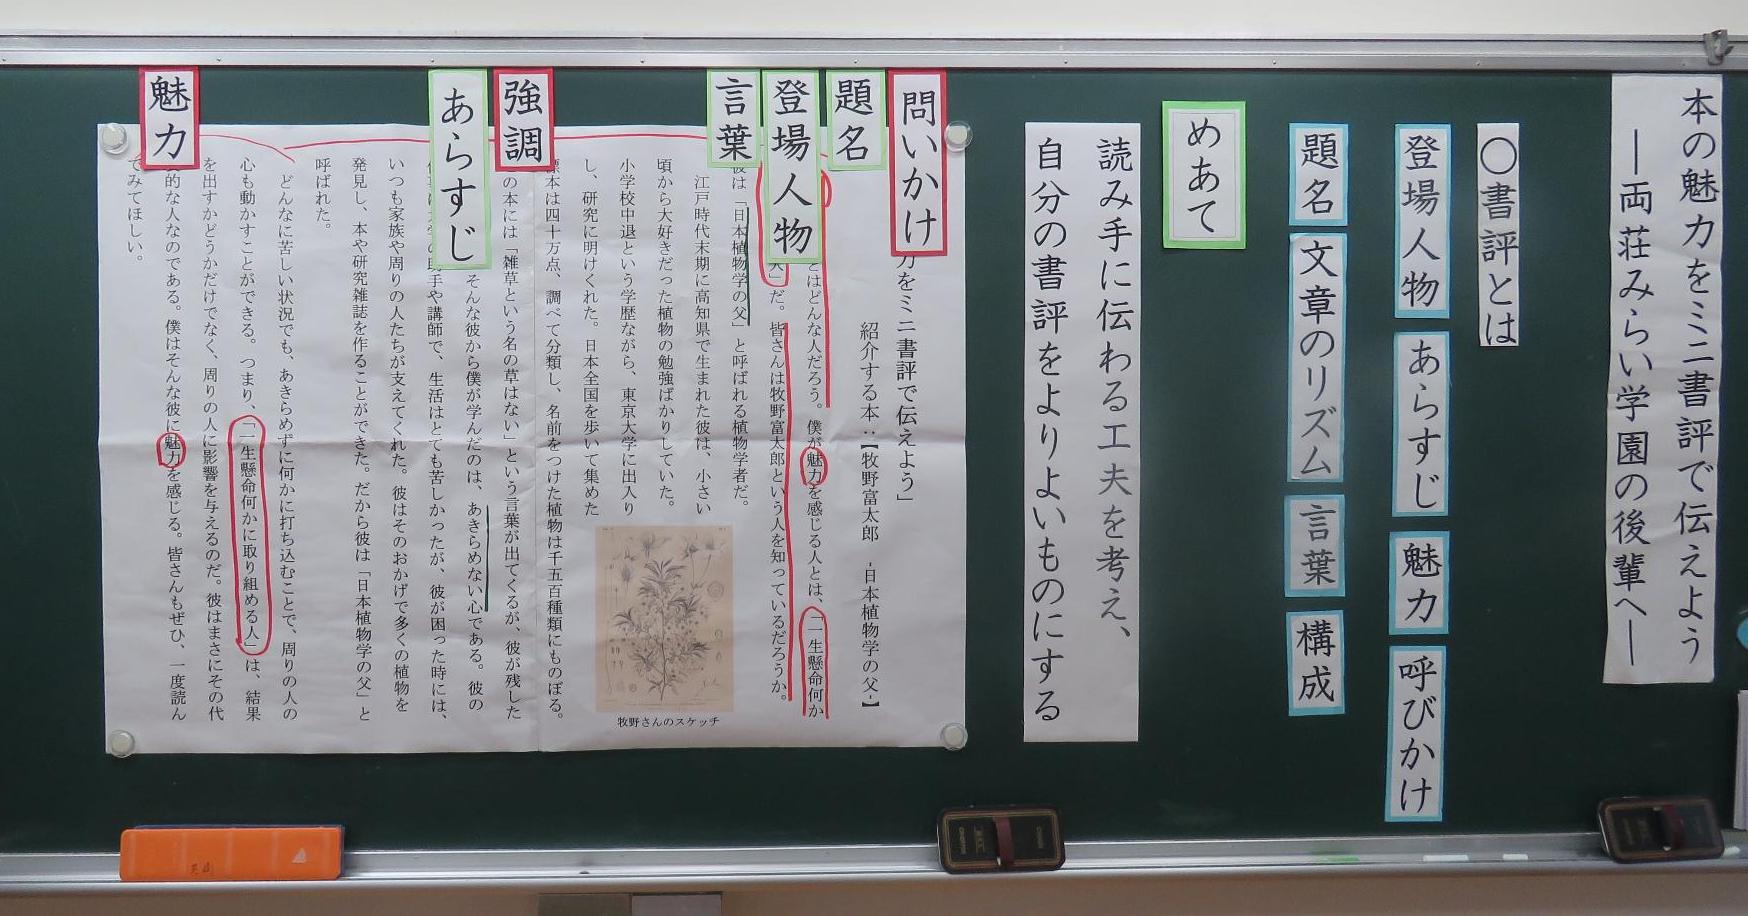 本の魅力をミニ書評で伝えよう
―両荘みらい学園の後輩へ―
〇書評とは
登場人物 あらすじ 魅力 呼びかけ
題名 文章のリズム 言葉 構成
めあて
読み手に伝わる工夫を考え、
自分の書評をよりよいものにする
問いかけ
題名
登場人物
言葉
強調
あらすじ
魅力
力をミニ書評で伝えよう」
紹介する本:【牧野富太郎 -日本植物学の父-】
とはどんな人だろう。僕が魅力を感じる人とは、「一生懸命何か
人」だ。皆さんは牧野富太郎という人を知っているだろうか。
彼は「日本植物学の父」と呼ばれる植物学者だ。
江戸時代末期に高知県で生まれた彼は、小さい
頃から大好きだった植物の勉強ばかりしていた。
小学校中退という学歴ながら、東京大学に出入り
し、研究に明けくれた。日本全国を歩いて集めた
標本は四十万点、調べて分類し、名前をつけた植物は千五百種類にものぼる。
この本には「雑草という名の草はない」という言葉が出てくるが、彼が残した
そんな彼から僕が学んだのは、あきらめない心である。彼の
手や講師で、生活はとても苦しかったが、彼が困った時には、
いつも家族や周りの人たちが支えてくれた。彼はそのおかげで多くの植物を
発見し、本や研究雑誌を作ることができた。だから彼は「日本植物学の父」と
呼ばれた。
どんなに苦しい状況でも、あきらめずに何かに打ち込むことで、周りの人の
心も動かすことができる。つまり、「一生懸命何かに取り組める人」は、結果
を出すかどうかだけでなく、周りの人に影響を与えるのだ。彼はまさにその代
的な人なのである。僕はそんな彼に魅力を感じる。皆さんもぜひ、一度読ん
でみてほしい。
牧野さんのスケッチ